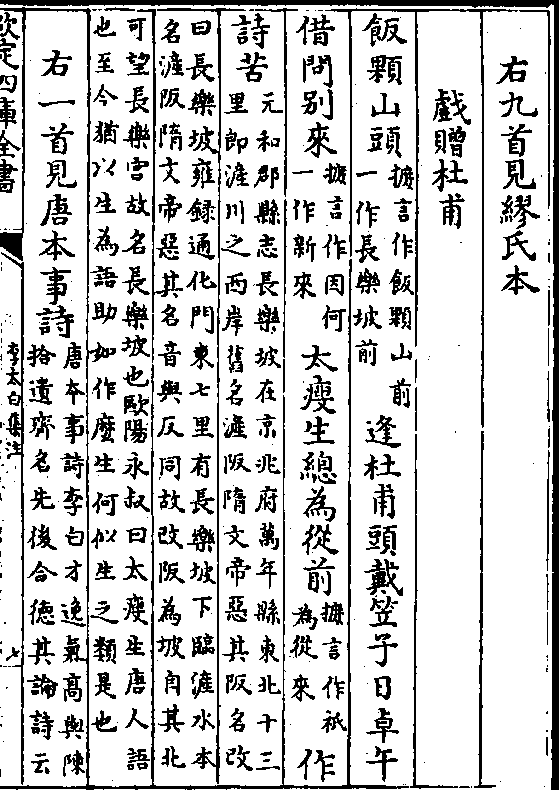 右九首見繆氏本
戲贈杜甫
飯顆山頭
摭言作飯顆山前
一作長樂坡前
逢杜甫頭戴笠子日卓午
借問别來
摭言作因何
一作新來
太瘦生總為從前
摭言作祇
為從來
作
詩苦
元和郡縣志長樂坡在京兆府萬年縣東北十三
里即滻川之西岸舊名滻阪隋文帝惡其阪名改
曰長樂坡雍録通化門東七里有長樂坡下臨滻水本
名滻阪隋文帝惡其名音與反同故改阪為坡自其北
可望長樂宮故名長樂坡也歐陽永叔曰太瘦生唐人語
也至今猶以生為語助如作麽生何似生之類是也
右一首見唐本事詩
唐本事詩李白才逸氣高與陳
拾遺齊名先後合德其論詩云
欽定四庫全書
李太白集注
七